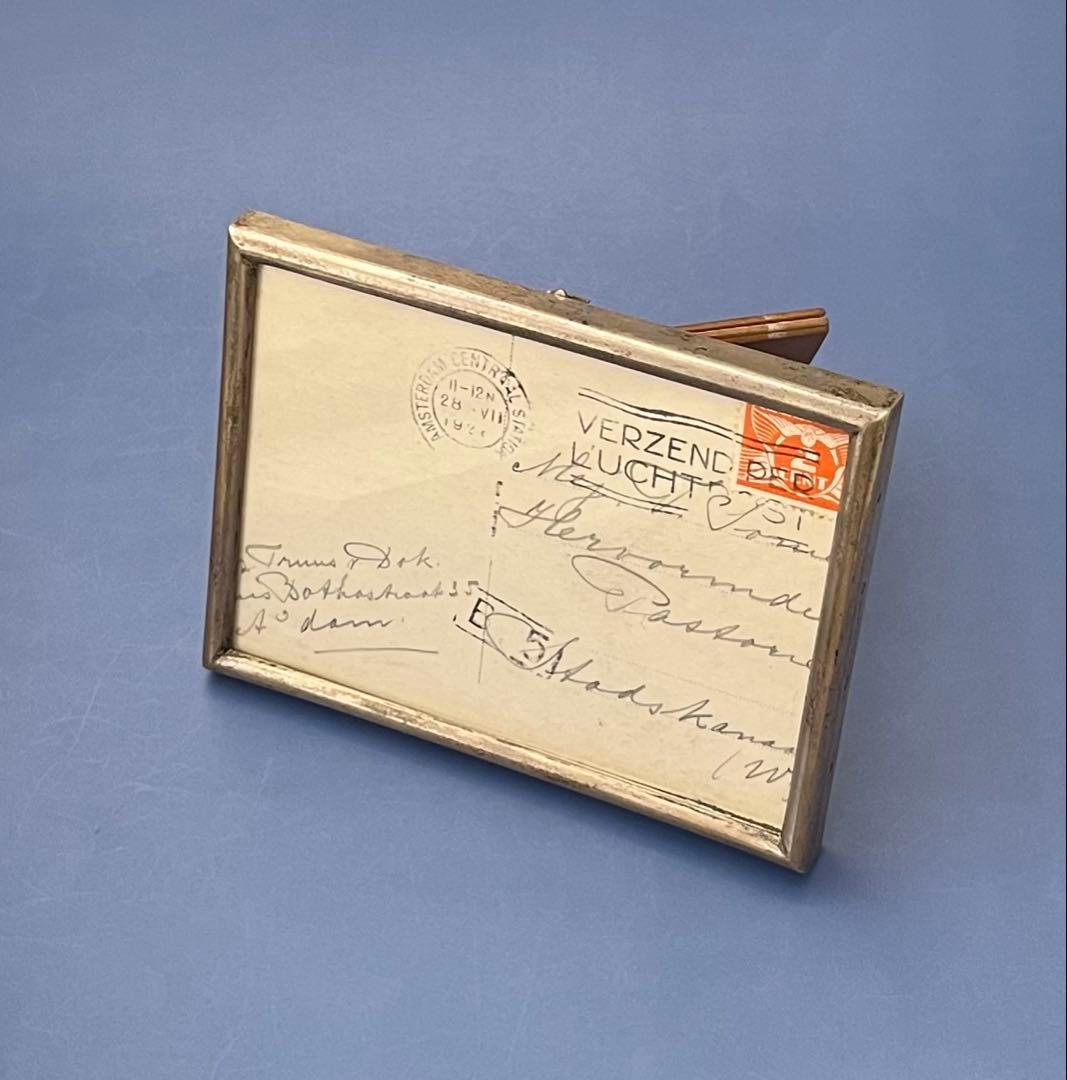 AMSTERDAM CENTRAAL STATION
11-12N
28 VII
VERZEND PER
LUCHTPOST
2
CENT
Mej.
Hervormde
Pastorie
Stadskana
(W
Truus Dok.
Bothastraat 35
A'dam.
B 51